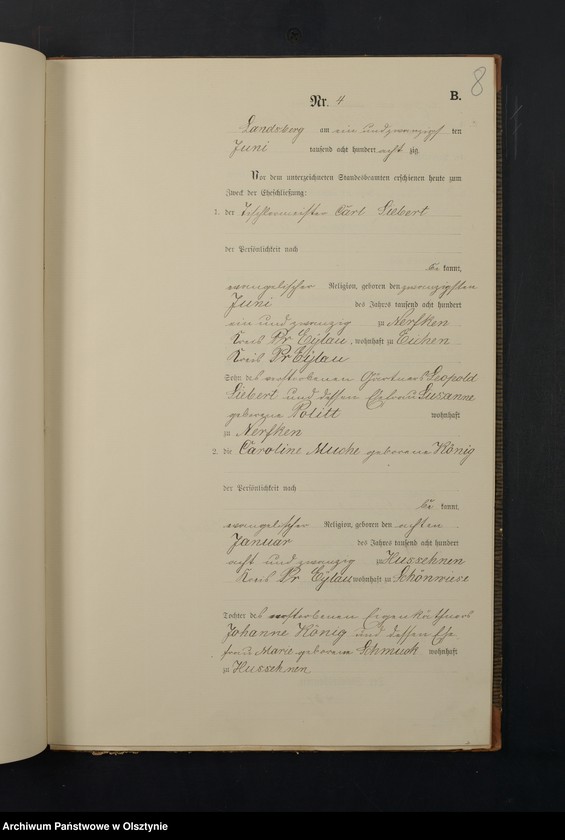 8
Nr. 4 B.
Landsberg am ein und zwanzigsten
Juni tausend acht hundert acht zig
Vor dem unterzeichneten Standesbeamten erschienen heute zum
Zweck der Eheschließung:
1. der Tischlermeister Carl Liebert
der Persönlichkeit nach
be kannt,
evangelischer Religion, geboren den zwanzigsten
Juni des Jahres tausend acht hundert
ein und zwanzig zu Nerfken
Kreis Pr Eylau, wohnhaft zu Eichen
Kreis Pr Eylau
Sohn des verstorbenen Gärtners Leopold
Liebert und dessen Ehefrau Susanne
geborene Politt wohnhaft
zu Nerfken
2. die Caroline Muche geborene König
der Persönlichkeit nach
be kannt,
evangelischer Religion, geboren den achten
Januar des Jahres tausend acht hundert
acht und zwanzig zu Hussehnen
Kreis Pr Eylau wohnhaft zu Schönwiese
Tochter des verstorbenen Eigenkäthners
Johann König und dessen Ehe
frau Marie geborene Schmuck wohnhaft
zu Hussehnen
Archiwum Państwowe w Olsztynie